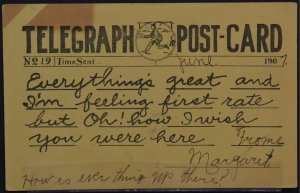 TELEGRAPH POST-CARD
No 19 Time Sent June 1907.
Everything's great and
I'm feeling first rate
but Oh! how I wish
you were here From
Margaret
How is ever thing up there?